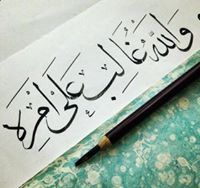 والله غالب على أمره